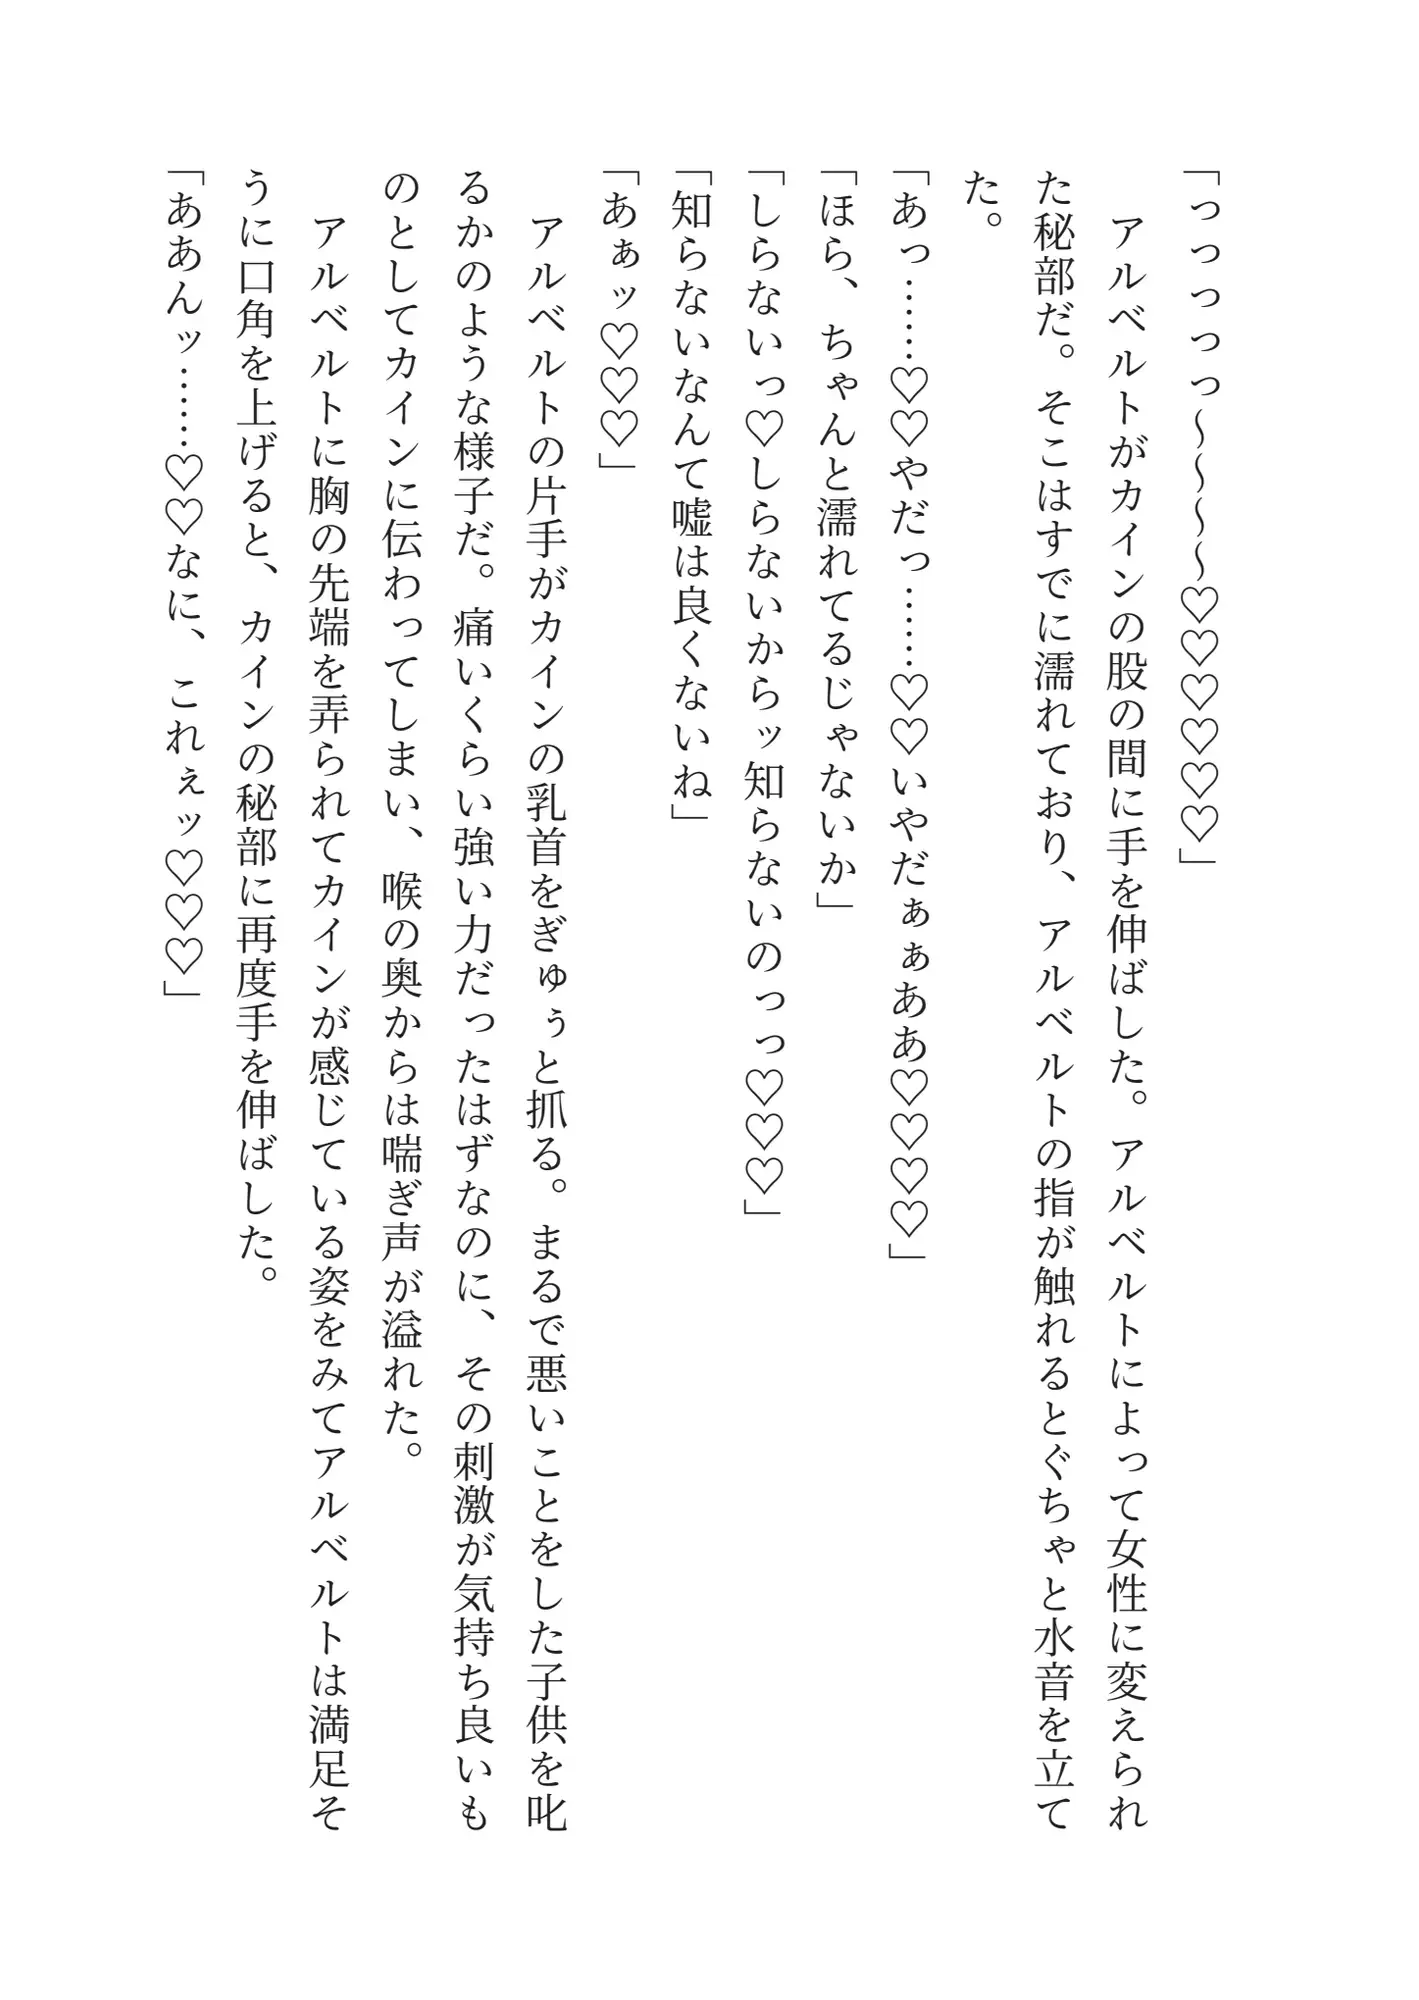 「っっっっっ～～～～♡♡♡♡♡♡」
　アルベルトがカインの股の間に手を伸ばした。アルベルトによって女性に変えられ
た秘部だ。そこはすでに濡れており、アルベルトの指が触れるとぐちゃと水音を立て
た。
「あっ……♡♡やだっ……♡♡いやだぁぁああ♡♡♡♡」
「ほら、ちゃんと濡れてるじゃないか」
「しらないっ♡しらないからッ知らないのっっ♡♡♡」
「知らないなんて嘘は良くないね」
「あぁッ♡♡♡」
　アルベルトの片手がカインの乳首をぎゅぅと抓る。まるで悪いことをした子供を叱
るかのような様子だ。痛いくらい強い力だったはずなのに、その刺激が気持ち良いも
のとしてカインに伝わってしまい、喉の奥からは喘ぎ声が溢れた。
　アルベルトに胸の先端を弄られてカインが感じている姿をみてアルベルトは満足そ
うに口角を上げると、カインの秘部に再度手を伸ばした。
「ああんッ……♡♡なに、これぇッ♡♡♡」